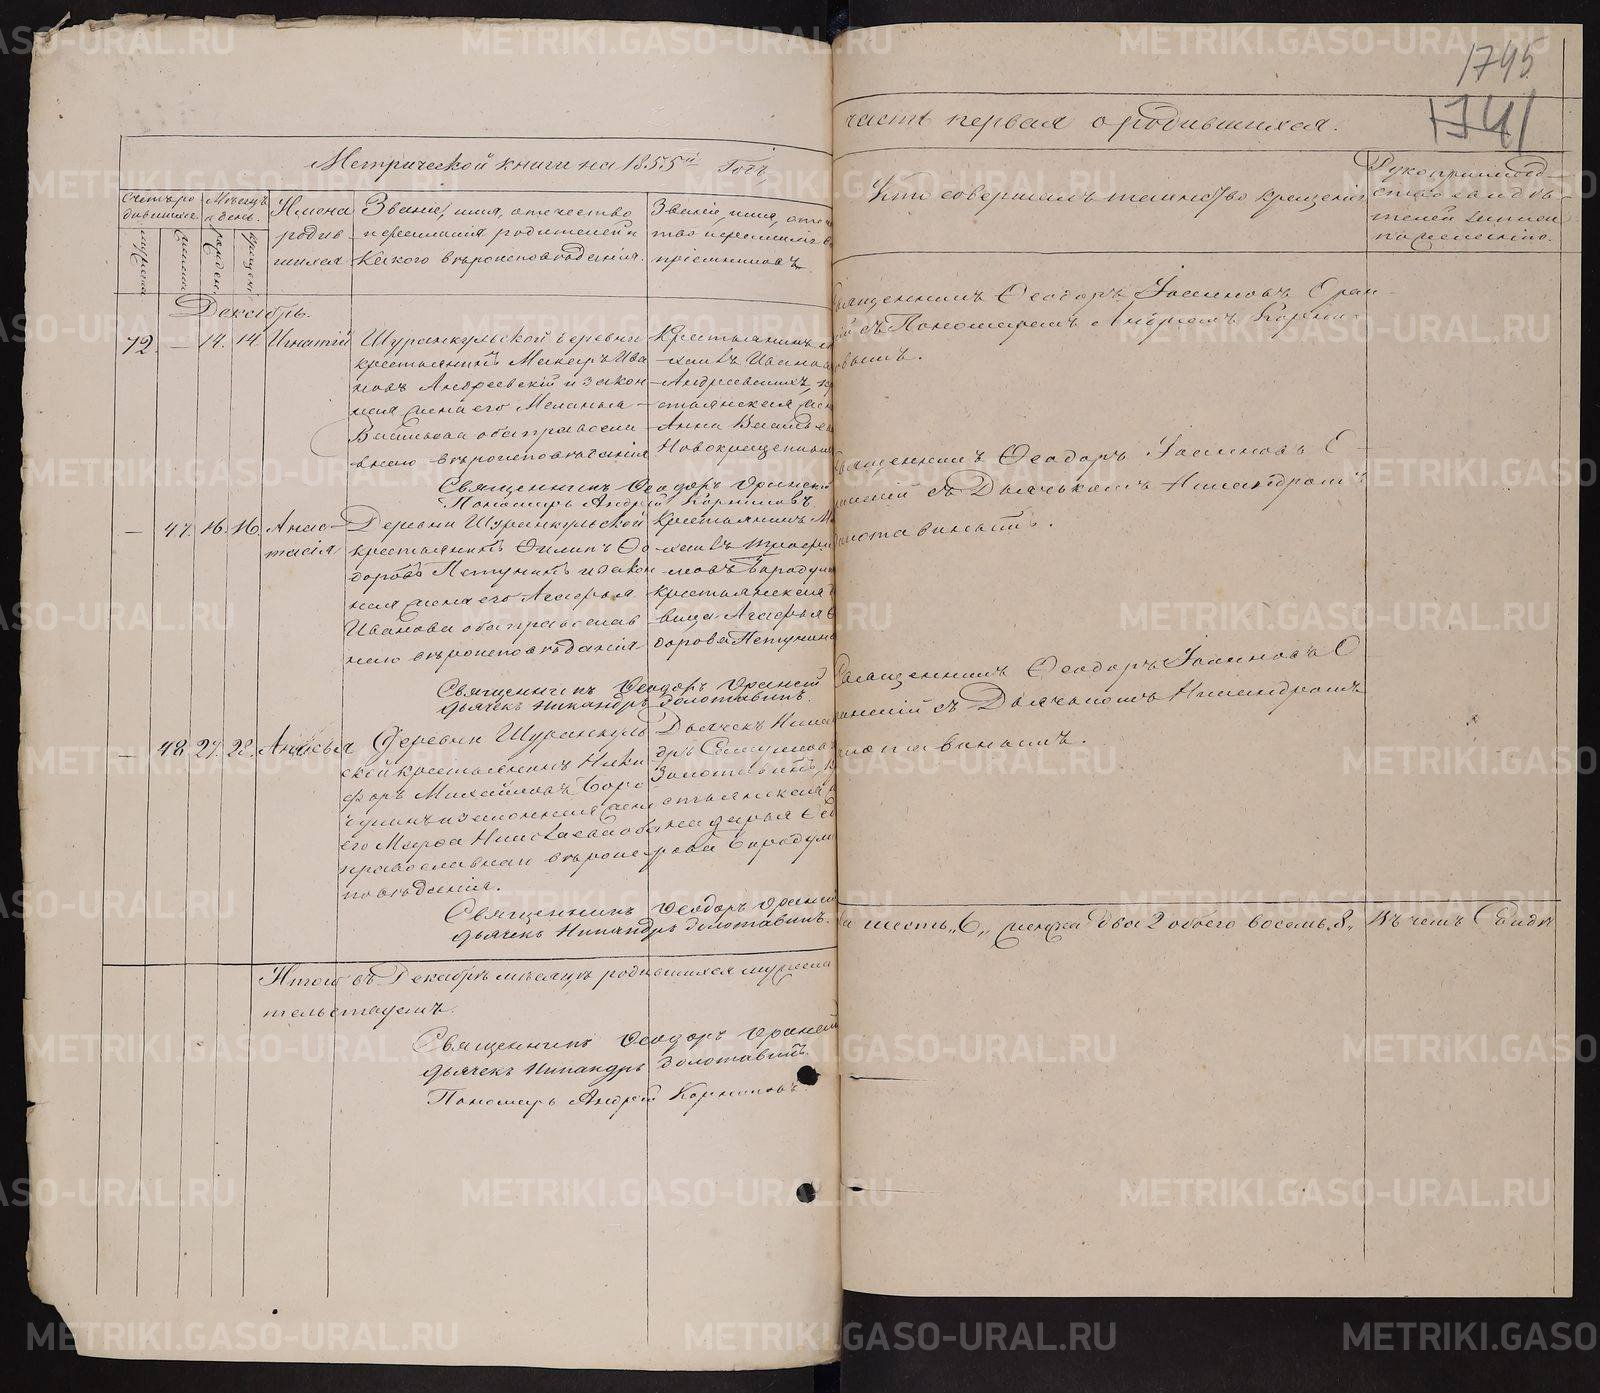 1745
1741
Метрической книги на 1855й Годъ,
часть первая о родившихся.
Счетъ ро
дившихся.
Мѣсяцъ
и день.
Имена
родив
шихся
Званіе, имя, отчество
и фамилія родителей и
какого вѣроисповѣданія.
Званіе, имя, отче
ство и фамилія в
пріемниковъ.
Кто совершалъ таинство крещенія
Рукоприклад
ство свидѣ
телей записи
по желанію.
мужска
женска
рожден.
крещені
Декабрь.
72. — 14. 14 Игнатій
Шуранкульской деревни
крестьянинъ Макаръ Ива
новъ Андреевскій и закон
ная жена его Меланья
Васильева оба православ
наго вѣроисповѣданія
Крестьянинъ
Иванов
Андреевскихъ, кр
стьянская
Анна Василье
Новокрещенных
Священникъ Ѳеодоръ Іоанновъ Оран
ій съ Пономаремъ Андреемъ Корни
вымъ.
Священникъ Ѳеодоръ Оранскі
Пономарь Андрей Корниловъ
— 47. 16. 16. Анас
тасія
Деревни Шуранкульской
крестьянинъ Филипъ Ѳе
доровъ Петунинъ и закон
ная жена его Агафья
Иванова оба православ
наго вѣроисповѣданія
Крестьянинъ М
хаилъ Трофи
мовъ Бородул
крестьянская д
вица Агафья Ѳ
дорова Петунина
Священникъ Ѳеодоръ Іоанновъ О
ранскій съ Дьячькомъ Никандромъ
Золотавинымъ.
Священникъ Ѳеодоръ Оранскій
Дьячекъ Никандръ Золотавинъ.
— 48. 27. 28. Анисья
Деревни Шуранкуль
ской крестьянинъ Ники
форъ Михайловъ Боро
дулинъ и законная жена
его Марфа Николаева оба
православнаго вѣроис
повѣданія.
Дьячекъ Никан
дръ
Золотавинъ, к
стьянская
Дарья Ѳед
рова Бородул
Священникъ Ѳеодоръ Іоанновъ О
ранскій съ Дьячькомъ Никандромъ
Золотавинымъ.
Священникъ Ѳеодоръ Оранскій
Дьячекъ Никандръ Золотавинъ.
Итого въ Декабрѣ мѣсяцѣ родившихся мужеска
а шесть „6„ женска два 2 обоего восемь „8„ Въ чемъ Свидѣ
тельствуемъ.
Священникъ Ѳеодоръ Оранскій
Дьячекъ Никандръ Золотавинъ.
Пономарь Андрей Корниловъ
METRIKI.GASO-URAL.RU